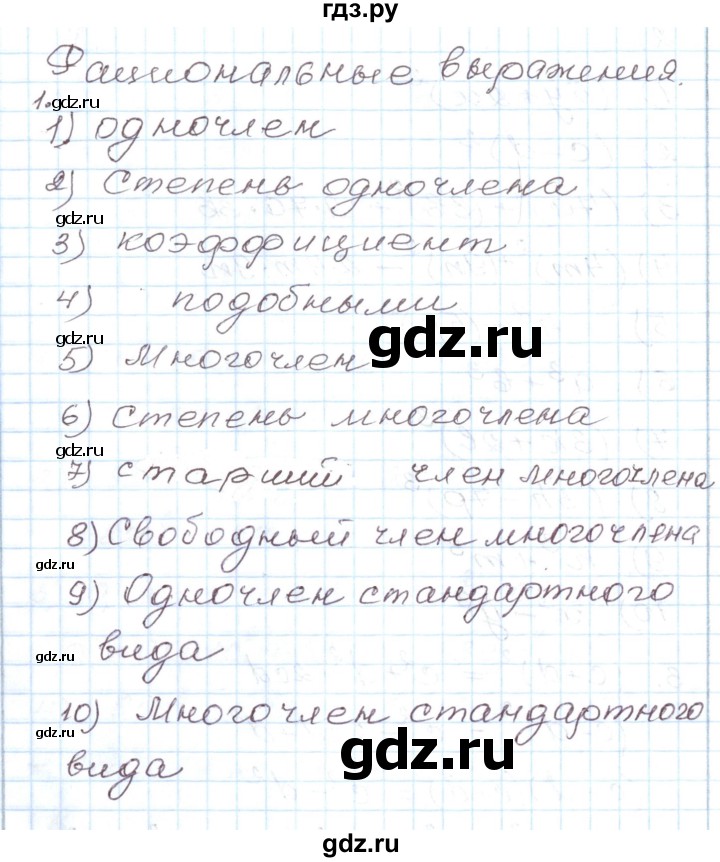 гдз.ру
Рациональные выражения.
1.
gdz.ru
1) одночлен
2) Степень одночлена
gdz.ru
3) коэффициент
4) подобными
gdz.ru
gdz.ru
5) Многочлен
6) Степень многочлена
gdz.ru
7) старший член многочлена
8) Свободный член многочлена
gdz.ru
9) Одночлен стандартного
gdz.ru
вида
10) Многочлен стандартного
gdz.ru
gdz.ru
вида
gdz.ru